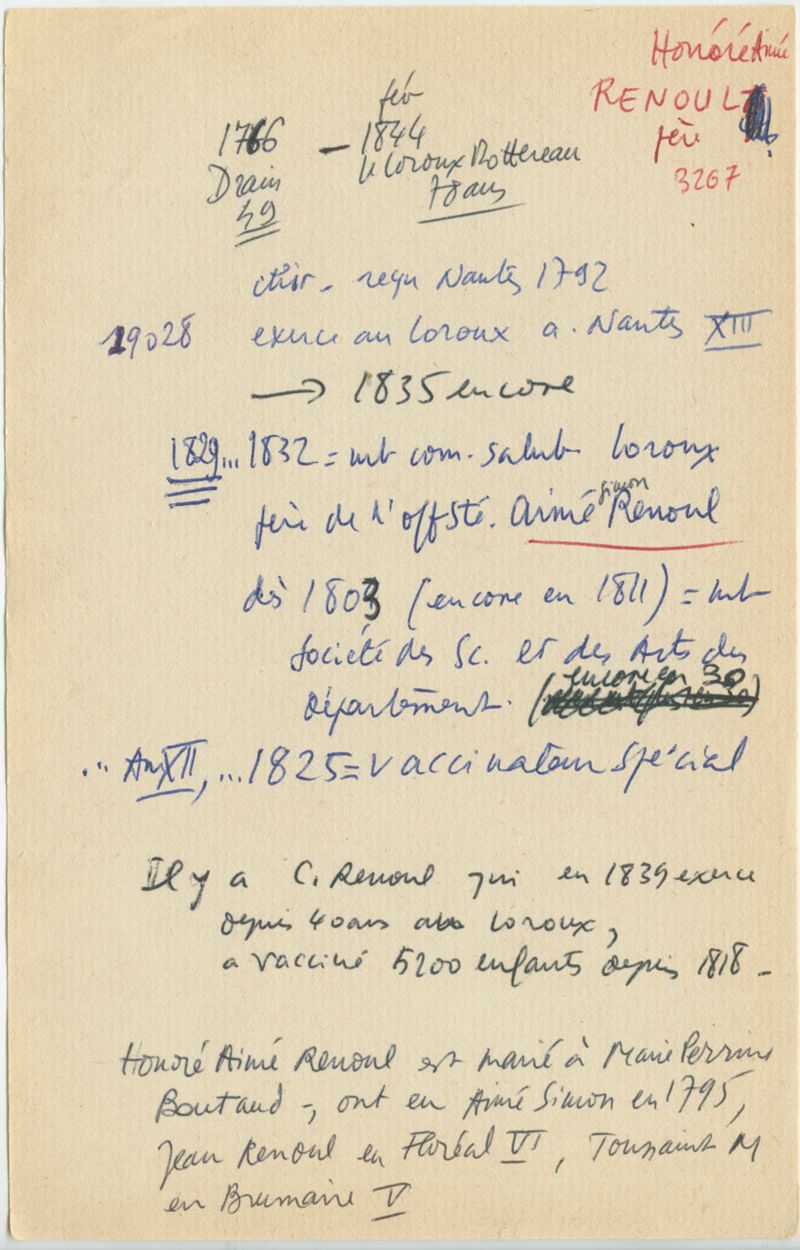 Honoré Aimé
RENOUL
père
3267
fév
1766 — 1844
Drain le Loroux Bottereau
49 78 ans
chir - reçu Nantes 1792
19028 exerce au Loroux a. Nantes XIII
→ 1835 encore
1829... 1832 = mb com. salub Loroux
simon
père de l'off Sté. Aimé Renoul
dès 1803 (encore en 1811) = mb
Société des Sc. et des Arts du
encore en 30
département. ( )
... An XII, ... 1825 = vaccinateur spécial
Il y a C. Renoul qui en 1839 exerce
depuis 40 ans au Loroux,
a vacciné 5200 enfants depuis 1818 -
Honoré Aimé Renoul est marié à Marie Perrine
Boutaud -, ont eu Aimé Simon en 1795,
Jean Renoul en Floréal VI, Toussaint M
en Brumaire V